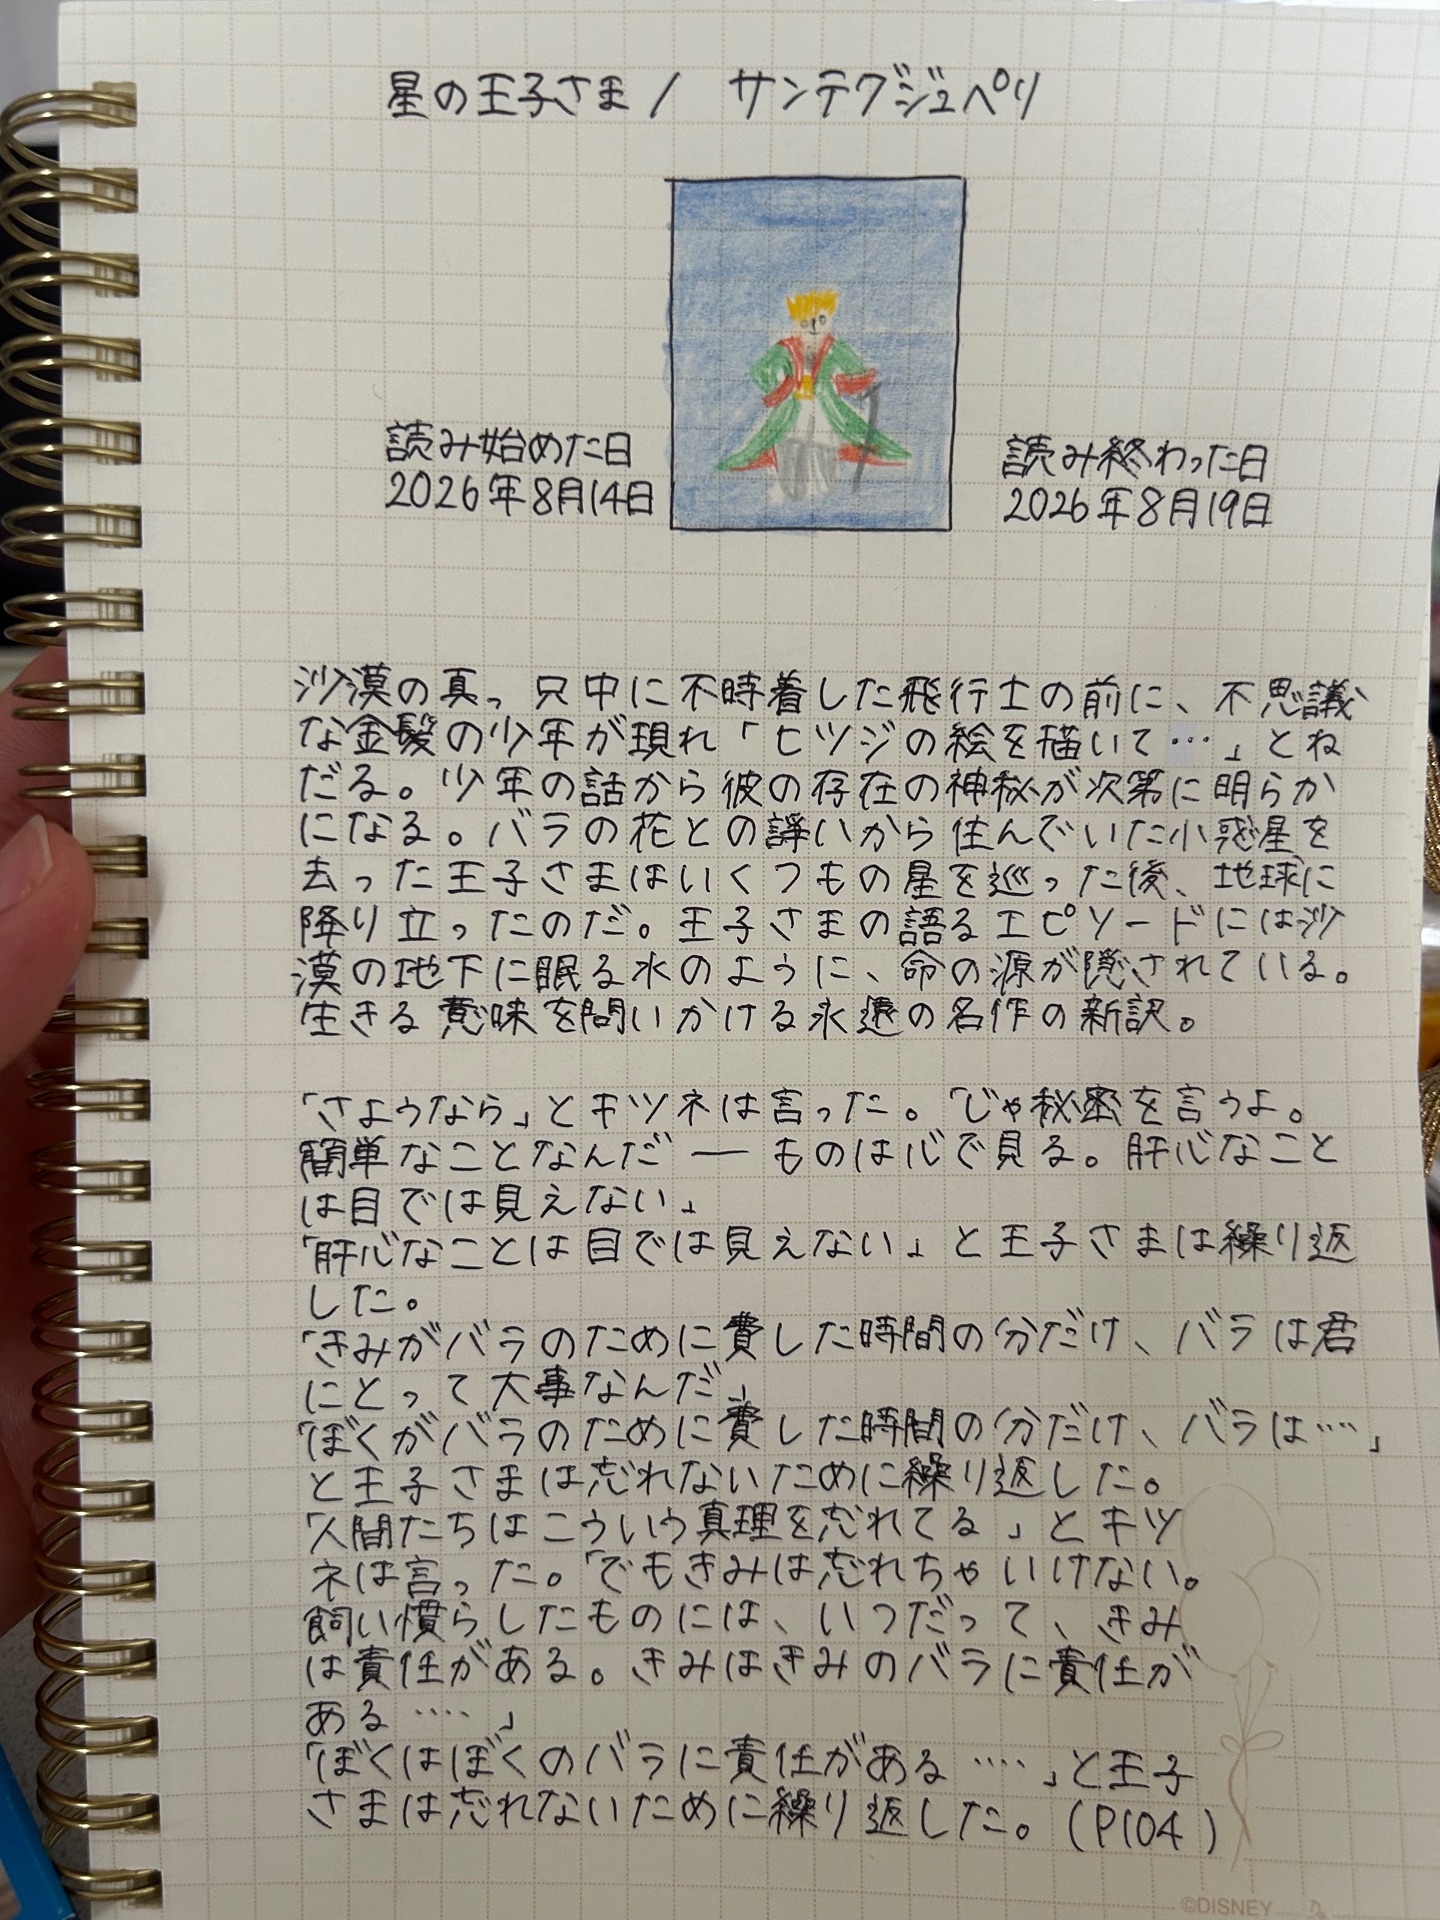 星の王子さま / サンテグジュペリ
読み始めた日
2026年8月14日
読み終わった日
2026年8月19日
沙漠の真っ只中に不時着した飛行士の前に、不思議
な金髪の少年が現れ「ヒツジの絵を描いて…」とね
だる。少年の話から彼の存在の神秘が次第に明らか
になる。バラの花との諍いから住んでいた小惑星を
去った王子さまはいくつもの星を巡った後、地球に
降り立ったのだ。王子さまの語るエピソードには沙
漠の地下に眠る水のように、命の源が隠されている。
生きる意味を問いかける永遠の名作の新訳。
「さようなら」とキツネは言った。「じゃ秘密を言うよ。
簡単なことなんだ ── ものは心で見る。肝心なこと
は目では見えない」
「肝心なことは目では見えない」と王子さまは繰り返
した。
「きみがバラのために費した時間の分だけ、バラは君
にとって大事なんだ」
「ぼくがバラのために費した時間の分だけ、バラは…」
と王子さまは忘れないために繰り返した。
「人間たちはこういう真理を忘れてる」とキツ
ネは言った。「でもきみは忘れちゃいけない。
飼い慣らしたものには、いつだって、きみ
は責任がある。きみはきみのバラに責任が
ある‥‥」
「ぼくはぼくのバラに責任がある‥‥」と王子
さまは忘れないために繰り返した。(P104)
©DISNEY